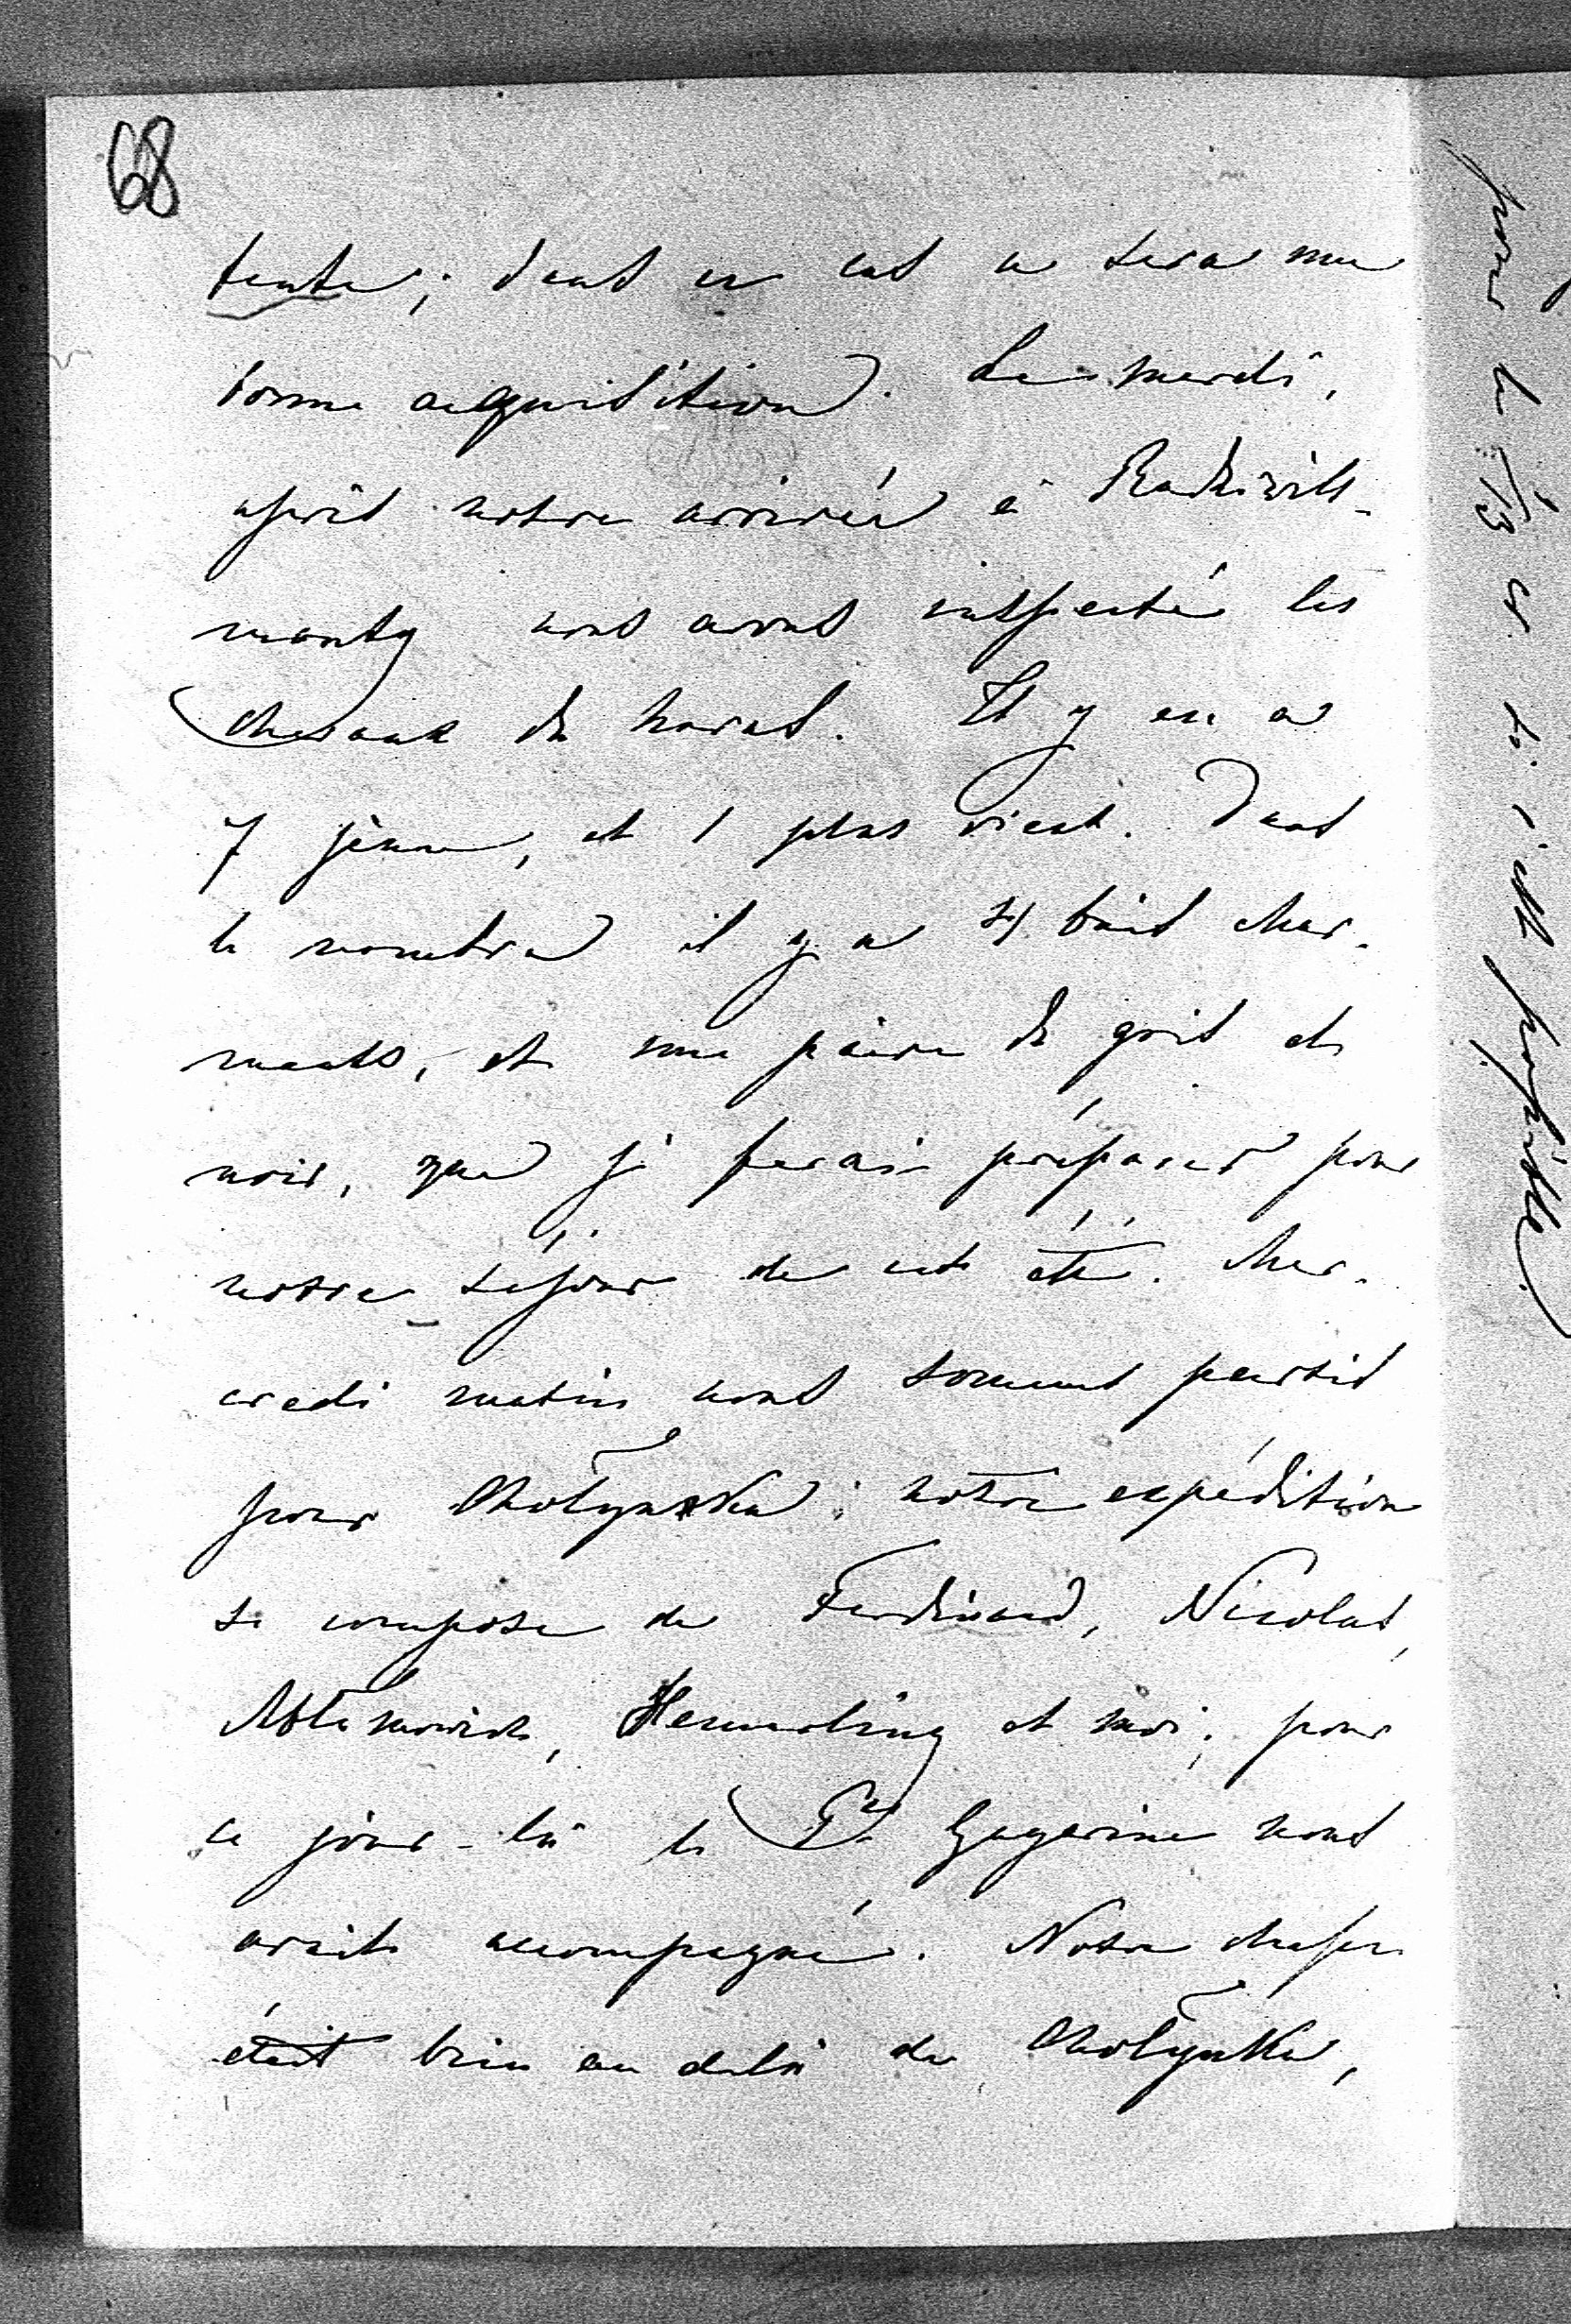 68
tente; dans ce cas ce sera une
bonne acquisition. Le mardi,
après notre arrivée à Radziwill-
monty nous avons inspecté les
chevaux du haras. Il y en a
7 jeune, et 1 plus vieux. Dans
le nombre il y a 4 bais char-
mants, et une paire de gris et
noir, que je ferai préparer pour
notre séjour de cet été. Mer-
credi matin nous sommes partis
pour Chotynka; notre expédition
se compose de Ferdinand, Nicolas,
Ablamowicz, Hemmerling et moi; pour
ce jour-là le Gagarine nous
avait accompagné. Notre chasse
était bien au delà de Chotynka,
pour le /13 si c'est possible